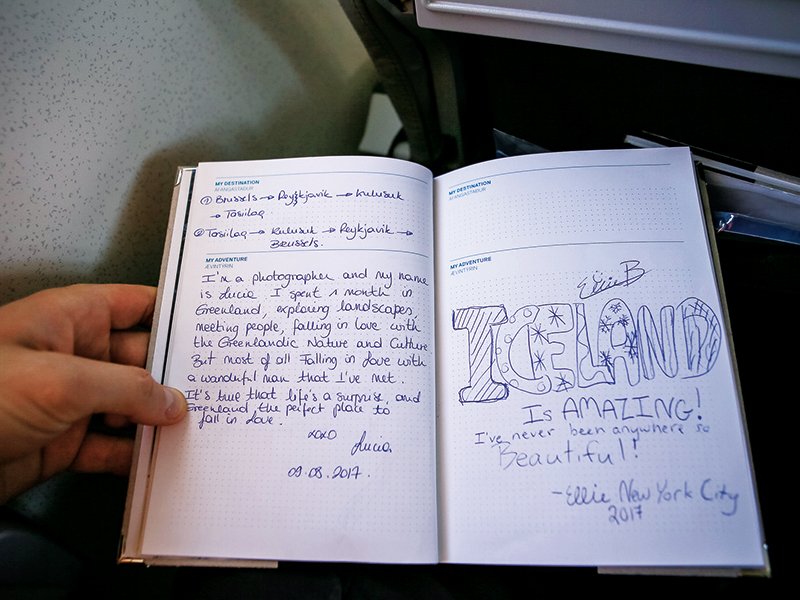 MY DESTINATION
ÁFANGASTAÐUR
① Brussels → Reykjavik → Kulusuk
→ Tasiilaq
② Tasiilaq → Kulusuk → Reykjavik →
Brussels.
MY ADVENTURE
ÆVINTÝRIN
I'm a photographer and my name
is Lucia. I spent 1 month in
Greenland, exploring landscapes,
meeting people, falling in love with
the Greenlandic Nature and Culture
But most of all falling in love with
a wanderful man that I've met.
It's true that life's a surprise, and
Greenland, the perfect place to
fall in love.
xoxo
Lucia.
09.08.2017.
MY DESTINATION
ÁFANGASTAÐUR
MY ADVENTURE
ÆVINTÝRIN
Ellie B
ICELAND
Is AMAZING!
I've never been anywhere so
Beautiful!
-Ellie New York City
2017